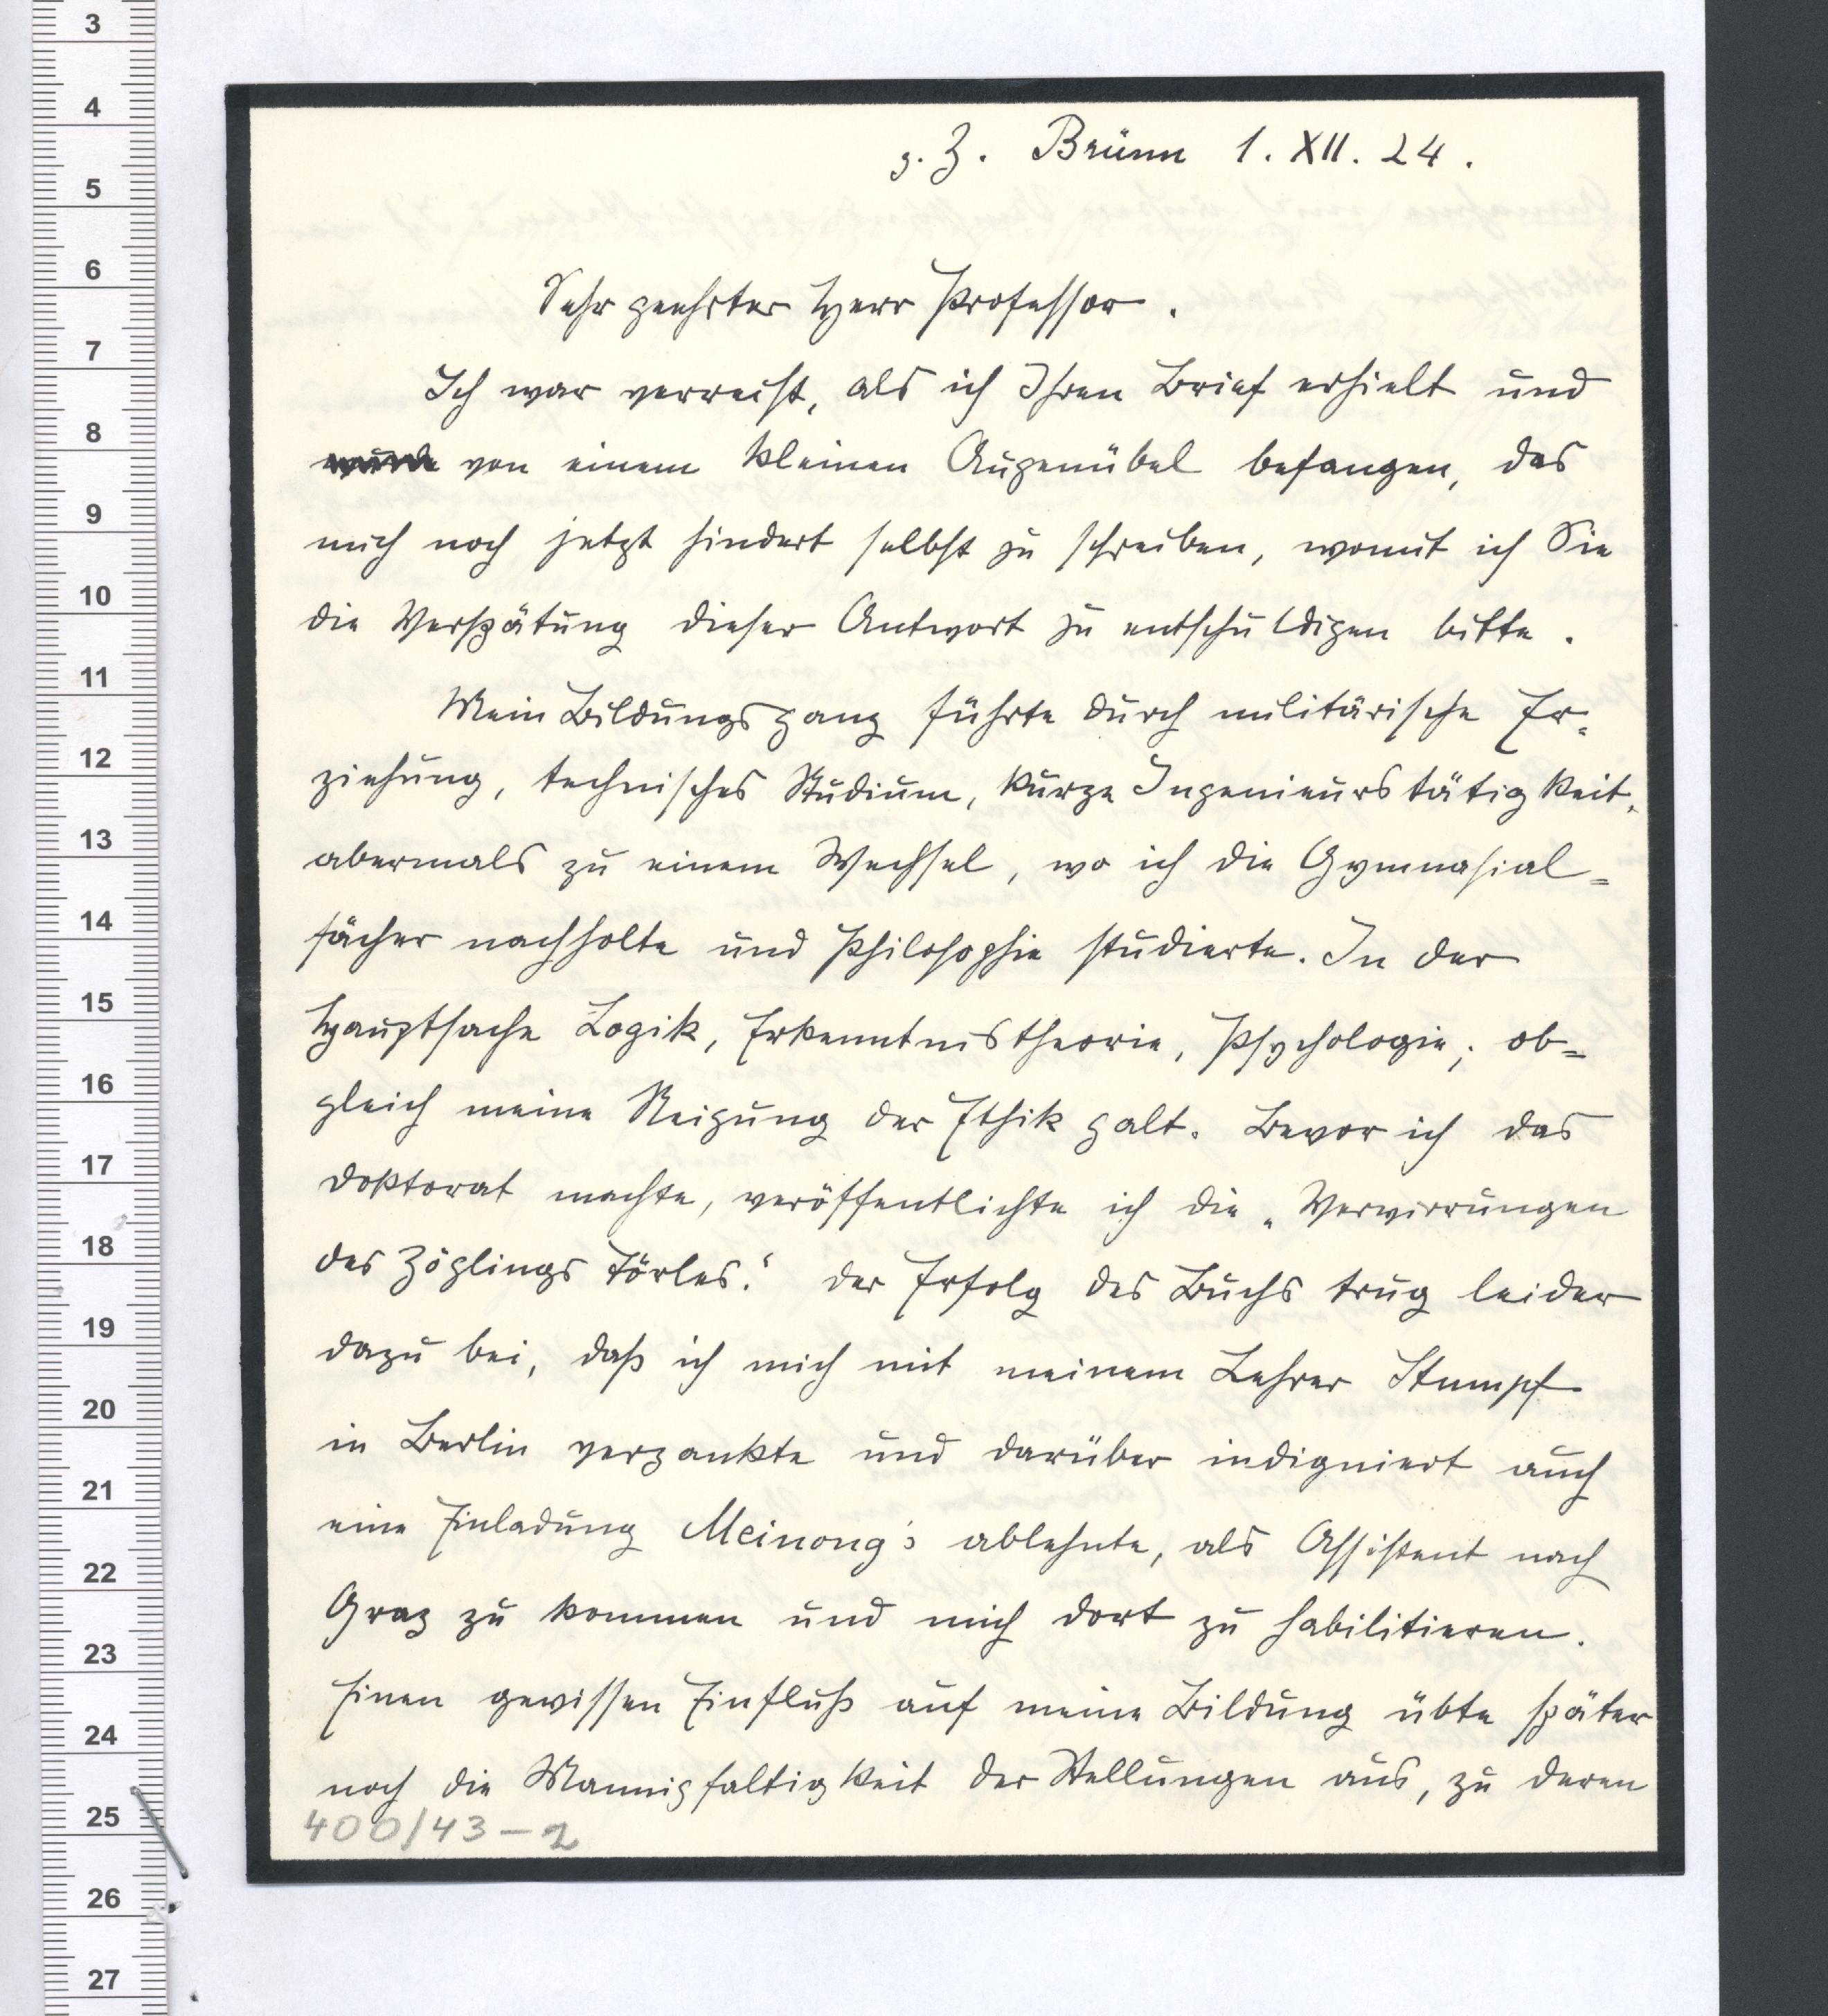 z. Z. Brünn 1. XII. 24.
Sehr geehrter Herr Professor.
Ich war verreist, als ich Ihren Brief erhielt und
von einem kleinen Augenübel befangen, das
mich noch jetzt hindert selbst zu schreiben, womit ich Sie
die Verspätung dieser Antwort zu entschuldigen bitte.
Mein Bildungsgang führte durch militärische Er-
ziehung, technisches Studium, kurze Ingenieurstätigkeit,
abermals zu einem Wechsel, wo ich die Gymnasial=
fächer nachholte und Philosophie studierte. In der
Hauptsache Logik, Erkenntnistheorie, Psychologie; ob=
gleich meine Neigung der Ethik galt. Bevor ich das
Doktorat machte, veröffentlichte ich die „Verwirrungen
des Zöglings Törles." Der Erfolg des Buchs trug leider
dazu bei, daß ich mich mit meinem Lehrer Stumpf
in Berlin verzankte und darüber indigniert auch
eine Einladung Meinong's ablehnte, als Assistent nach
Graz zu kommen und mich dort zu habilitieren.
Einen gewissen Einfluß auf meine Bildung übte später
noch die Mannigfaltigkeit der Stellungen aus, zu deren
400/43-2
3
4
5
6
7
8
9
10
11
12
13
14
15
16
17
18
19
20
21
22
23
24
25
26
27